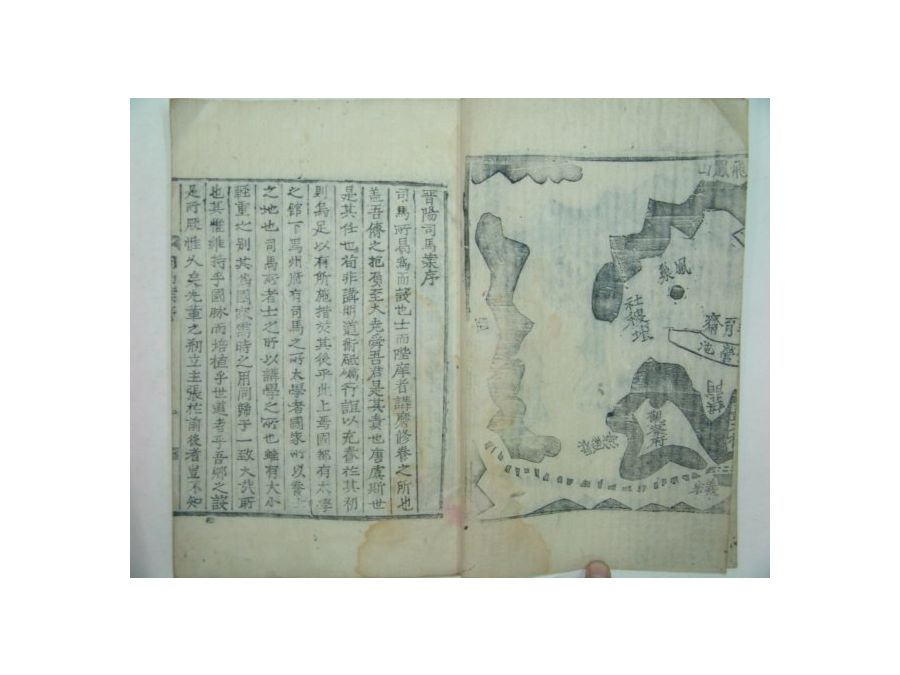 飛鳳山
社稷壇
觀察府
晋陽司馬案序
司馬所曷爲而設也士而陞庠者講磨修養之所也
盖吾儒之抱負至大堯舜吾君是其責也唐虞斯世
是其任也苟非講明道術砥礪行誼以充養於其初
則烏足以有所施措於其後乎此上焉國都有太學
之館下焉州府有司馬之所太學者國家所以養士
之地也司馬所者士之所以講學之所也雖有大小
輕重之別其爲國家需時之用同歸于一致大哉所
也其惟維持乎國脉而培植乎世道者乎吾鄕之設
是所厥惟久矣先輩之刱立主張於前後者豈不知